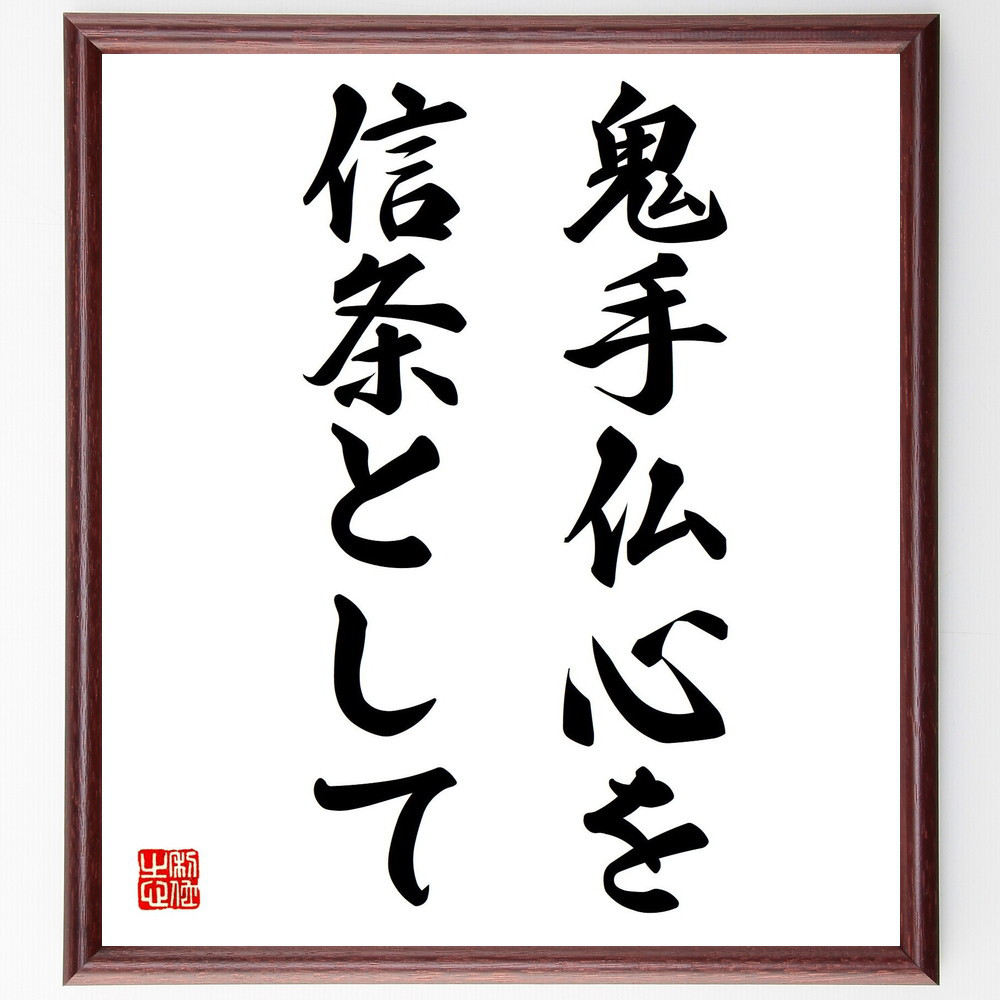 鬼手仏心を
信条として